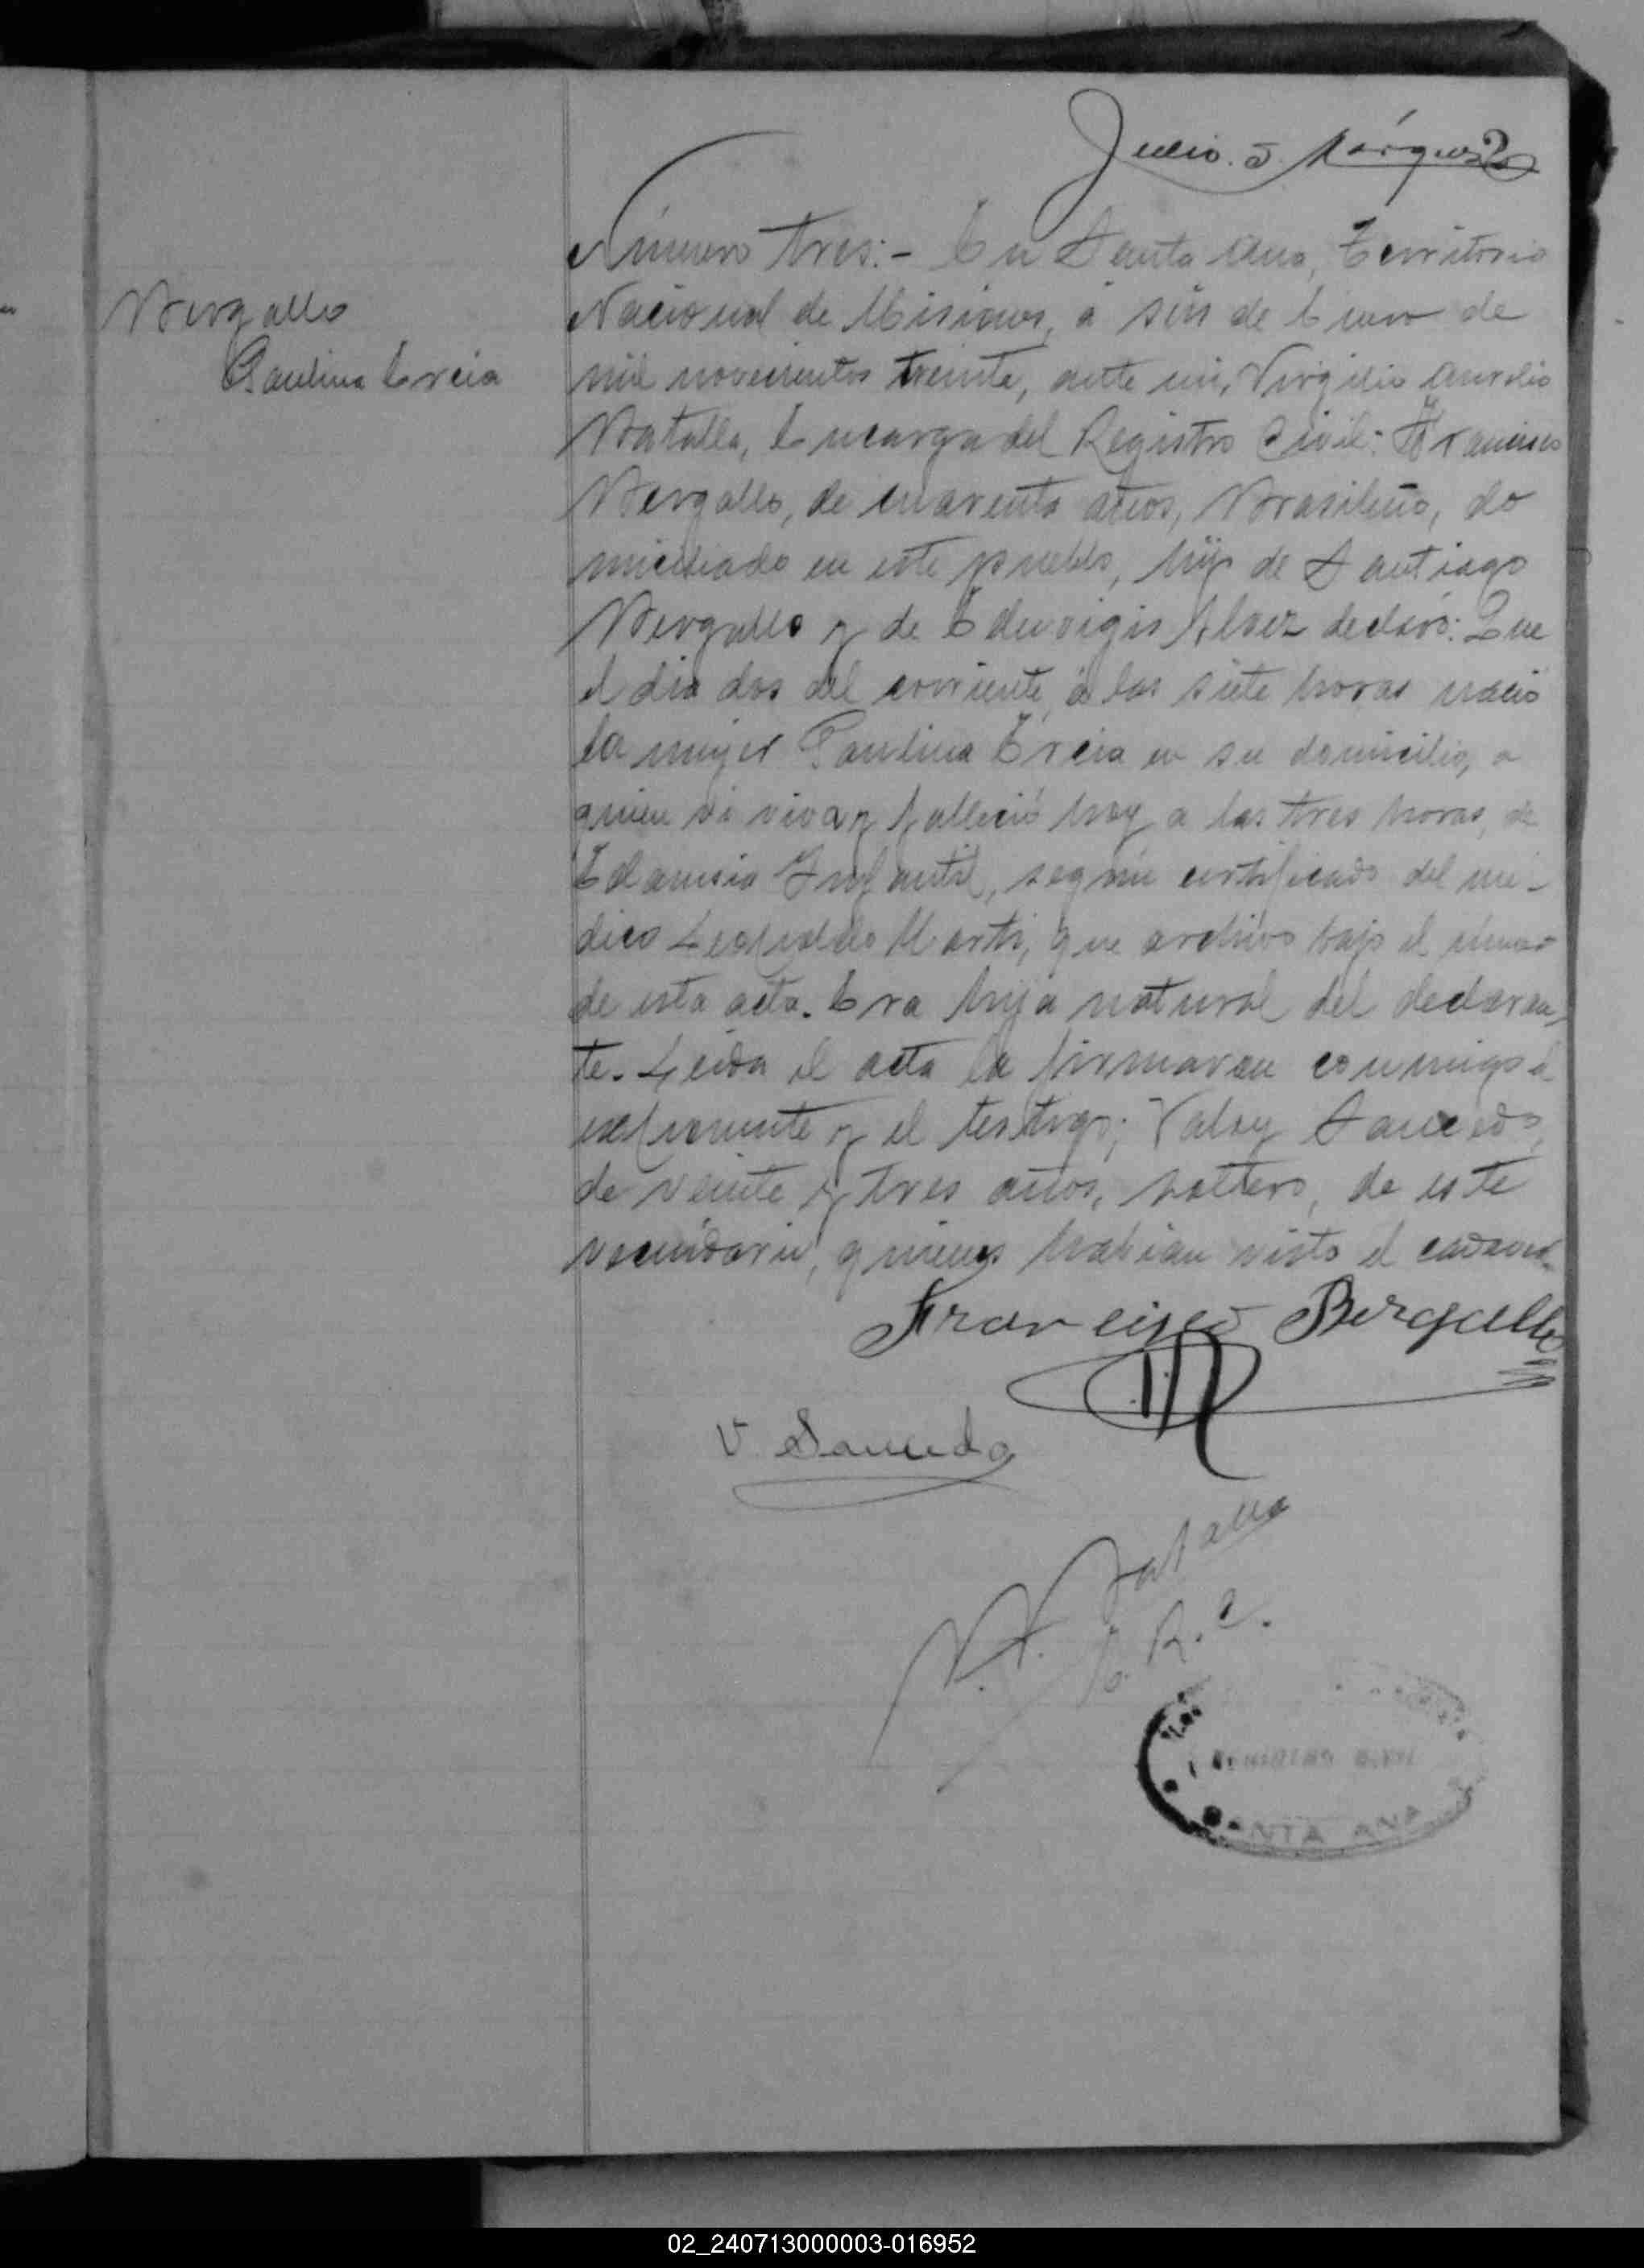 Julio. J. Márquez
Número tres:- En Santa Ana, Territorio
Bergallo
Nacional de Misiones, á seis de Enero de
Paulina Ercia
mil novecientos treinta, ante mi, Virgilio Aurelio
Batalla, Encargadel Registro Civil: Francisco
Bergallo, de cuarenta años, Brasileño, do
miciliado en este pueblo, hijo de Santiago
Bergallo y de Eduvigis declaró: Que
el dia dos del corriente, á las siete horas nació
la mujer Paulina Ercia en su domicilio, a
quien vi viva y falleció hoy a las tres horas, de
Eclamsia Infantil, según certificado del mé-
dico Leopoldo Marti, que archivo bajo el número
de esta acta. Era hija natural del declaran-
te. Leida el acta la firmaron conmigo el
exponente y el testigo; Saucedo,
de veinte y tres años, soltero, de este
vecindario, quienes habian visto el cadaver.
Francisco Bergallo
V. Saucedo
V. A. Batalla
E. R. C.
REGISTRO CIVIL
SANTA ANA
02_240713000003-016952